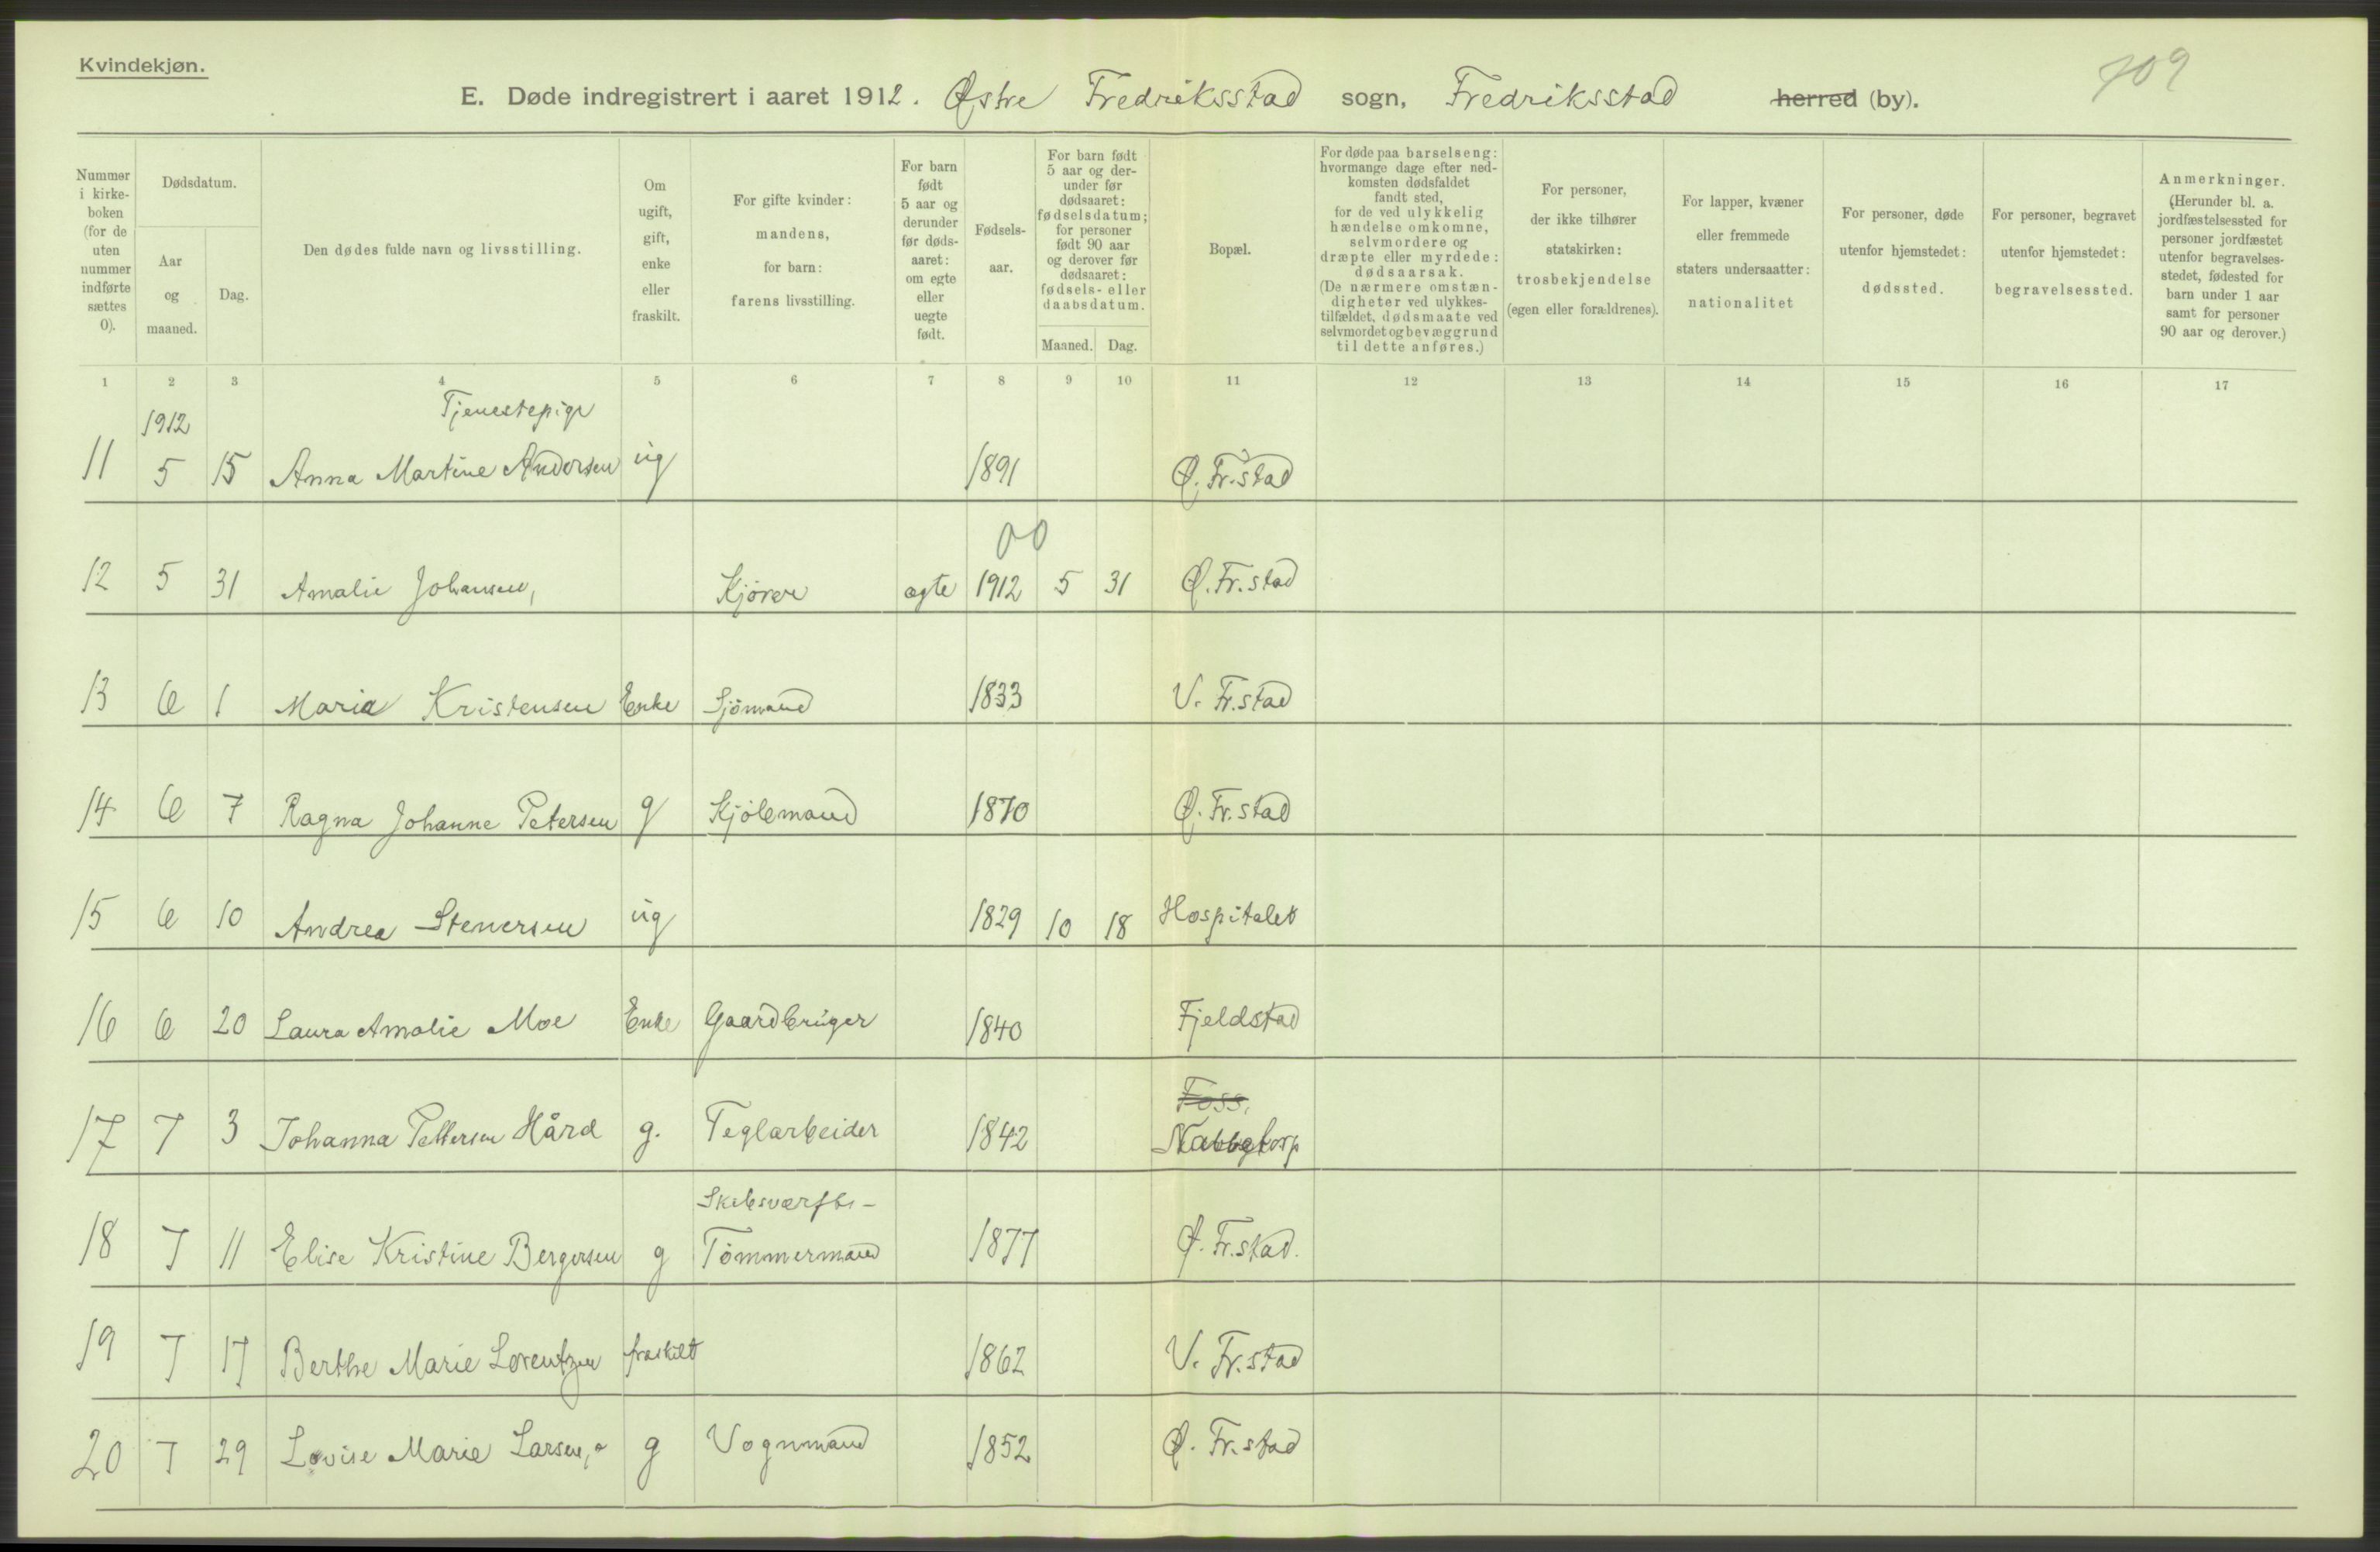 Kvindekjøn.
709
E. Døde indregistrert i aaret 1912. Østre Fredriksstad sogn, Fredriksstad herred (by).
Nummer i kirkeboken (for de uten nummer indførte sættes 0).
Dødsdatum.
Aar og maaned.
Dag.
Den dødes fulde navn og livsstilling.
Om ugift, gift, enke eller fraskilt.
For gifte kvinder: mandens, for barn: farens livsstilling.
For barn født 5 aar og derunder før dødsaaret: om egte eller uegte født.
Fødselsaar.
For barn født 5 aar og derunder før dødsaaret: fødselsdatum; for personer født 90 aar og derover før dødsaaret: fødsels- eller daabsdatum.
Maaned. Dag.
Bopæl.
For døde paa barselseng: hvormange dage efter nedkomsten dødsfaldet fandt sted, for de ved ulykkelig hændelse omkomne, selvmordere og dræpte eller myrdede: dødsaarsak. (De nærmere omstændigheter ved ulykkestilfældet, dødsmaate ved selvmordet og bevæggrund til dette anføres.)
For personer, der ikke tilhører statskirken: trosbekjendelse (egen eller forældrenes).
For lapper, kvæner eller fremmede staters undersaatter: nationalitet
For personer, døde utenfor hjemstedet: dødssted.
For personer, begravet utenfor hjemstedet: begravelsessted.
Anmerkninger. (Herunder bl. a. jordfæstelsessted for personer jordfæstet utenfor begravelsesstedet, fødested for barn under 1 aar samt for personer 90 aar og derover.)
1 2 3 4 5 6 7 8 9 10 11 12 13 14 15 16 17
1912 Tjenestepige
11 5 15 Anna Martine Andersen ug 1891 Ø. Fr.stad
00
12 5 31 Amalie Johansen, Kjører ægte 1912 5 31 Ø. Fr.stad
13 6 1 Maria Kristensen Enke Sjömand 1833 V. Fr.stad
14 6 7 Ragna Johanne Petersen g Kjölemand 1870 Ø. Fr.stad
15 6 10 Andrea Stenersen ug 1829 10 18 Hospitalet
16 6 20 Laura Amalie Moe Enke Gaardbruger 1840 Fjeldstad
Foss,
17 7 3 Johanna Pettersen Hård g. Teglarbeider 1842 Nabbetorp
Skibsværfts-
18 7 11 Elise Kristine Bergersen g Tömmermand 1877 Ø. Fr.stad.
19 7 17 Berthe Marie Lorentzen fraskilt 1862 V. Fr.stad
20 7 29 Lovise Marie Larsen, g Vognmand 1852 Ø. Fr.stad